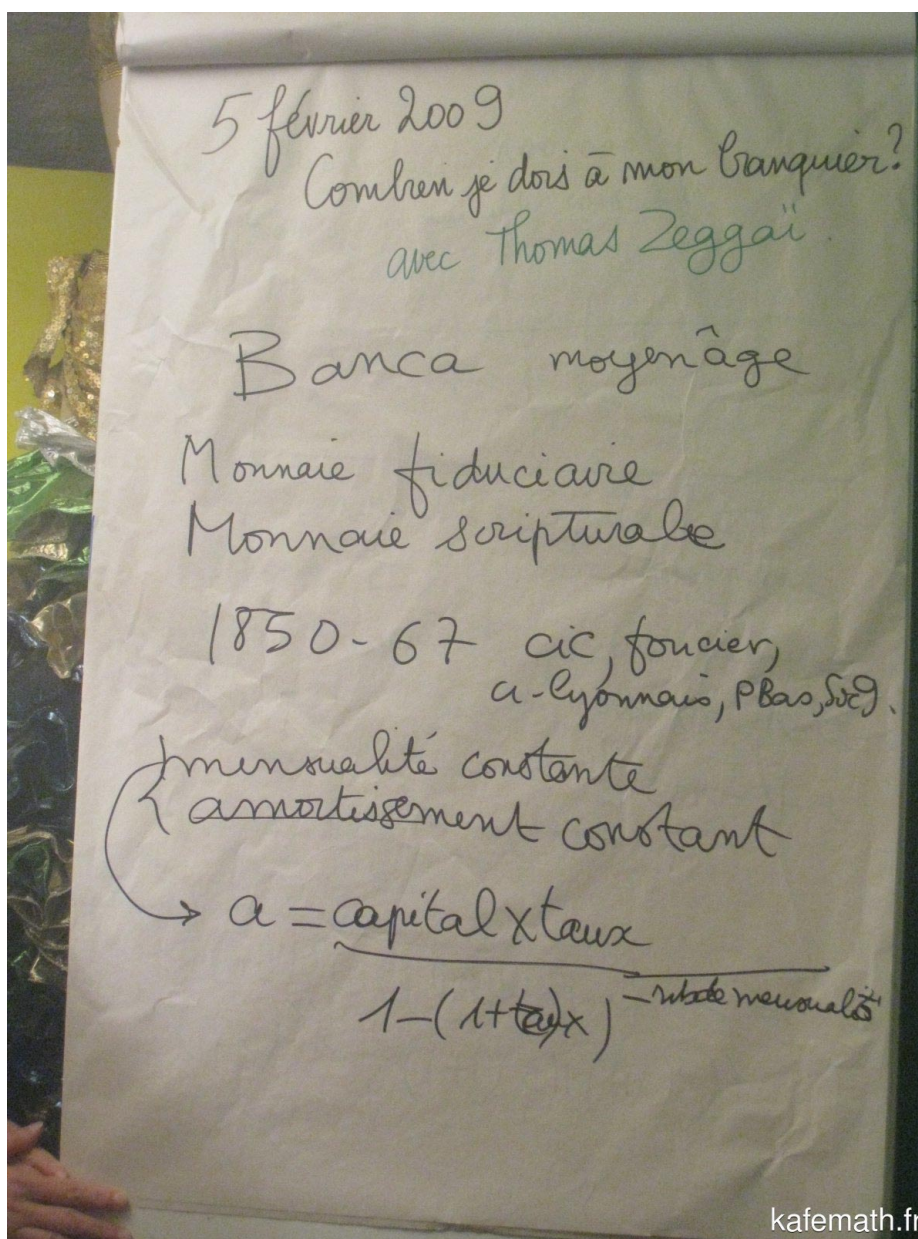 5 février 2009
Combien je dois à mon banquier?
avec Thomas Zeggaï.
Banca moyenâge
Monnaie fiduciaire
Monnaie scripturale
1850-67 cic, foncier,
cr-lyonnais, PBas, Socg.
mensualité constante
amortissement constant
a = capital x taux
1-(1+taux)^-nb de mensualités
kafemath.fr